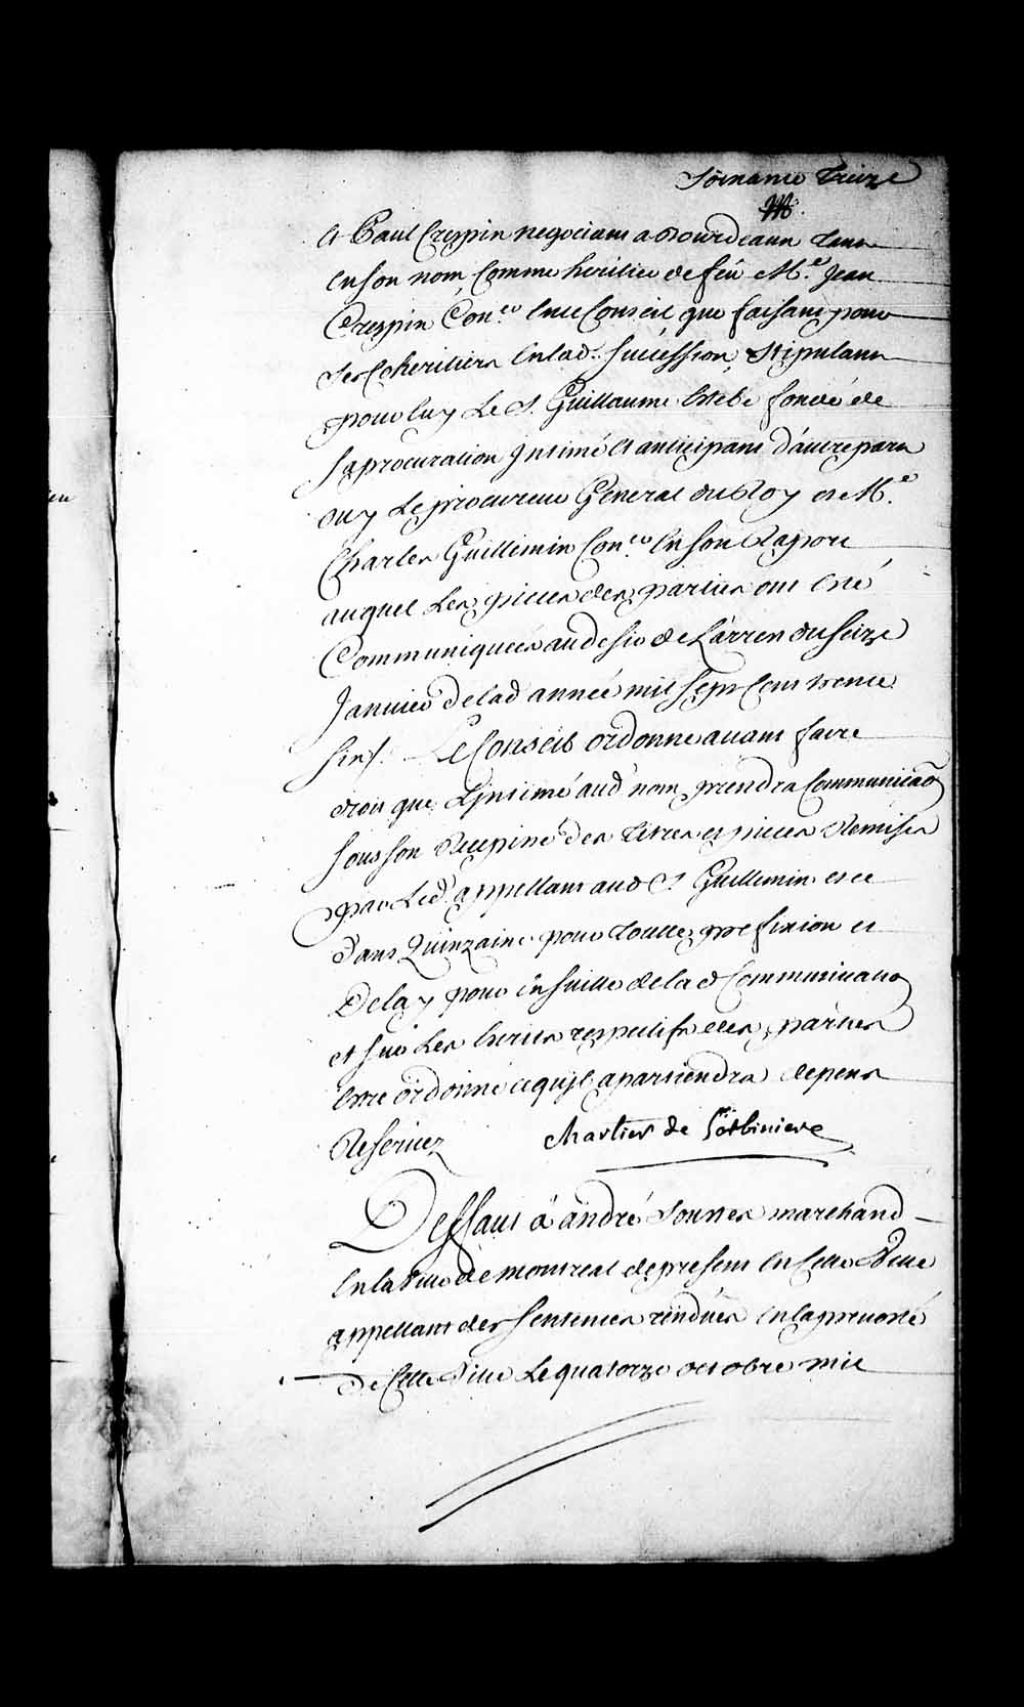 Soixante Treize
et Paul Crespin negociant a Bourdeaux tant
en son nom, Comme heritier de feu M.e Jean
Crespin Con.er en ce Conseil que faisant pour
ses Coheritiers en lad. succession, stipulant
pour luy Le S. Guillaume Estebe fondé de
sa procuration Intimé et anticipant d'autre part
ouy Le procureur General du Roy et M.e
Charles Guillimin Con.er en son Raport
auquel Les pieces des parties ont esté
Communiquées au desir de L'arrest du seize
Janvier de lad année mil sept Cent trente
six /. Le Conseil ordonne avant faire
droit que L'Intimé aud nom, prendra Communica͠on
sous son Recepissé des titres et pieces Remises
par Led appellant aud S. Guillimin et ce
dans Quinzaine pour toutte prefixion et
Delay pour en suitte de lad Communica͠on
et sur Les Ecrits respectifs des parties
Estre ordonné ce qu'jl apartiendra depens
Reservez Chartier de Lotbiniere
Deffaut à andré Souste marchand
en la ville de montreal de present en Cette Ville
appellant des sentences rendües en la prevosté
de Cette Ville Le quatorze octobre mil